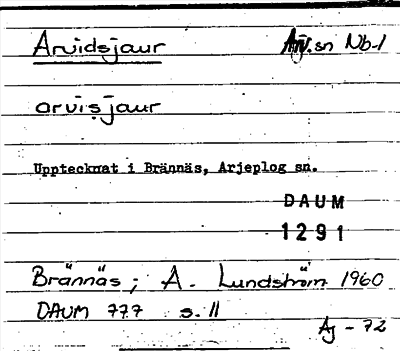 Arvidsjaur
Arj.sn Nb-l
arvisjaur
Upptecknat i Brännäs, Arjeplog sn.
DAUM
1291
Brännäs; A. Lundström 1960
DAUM 777 s.11
Aj - 72